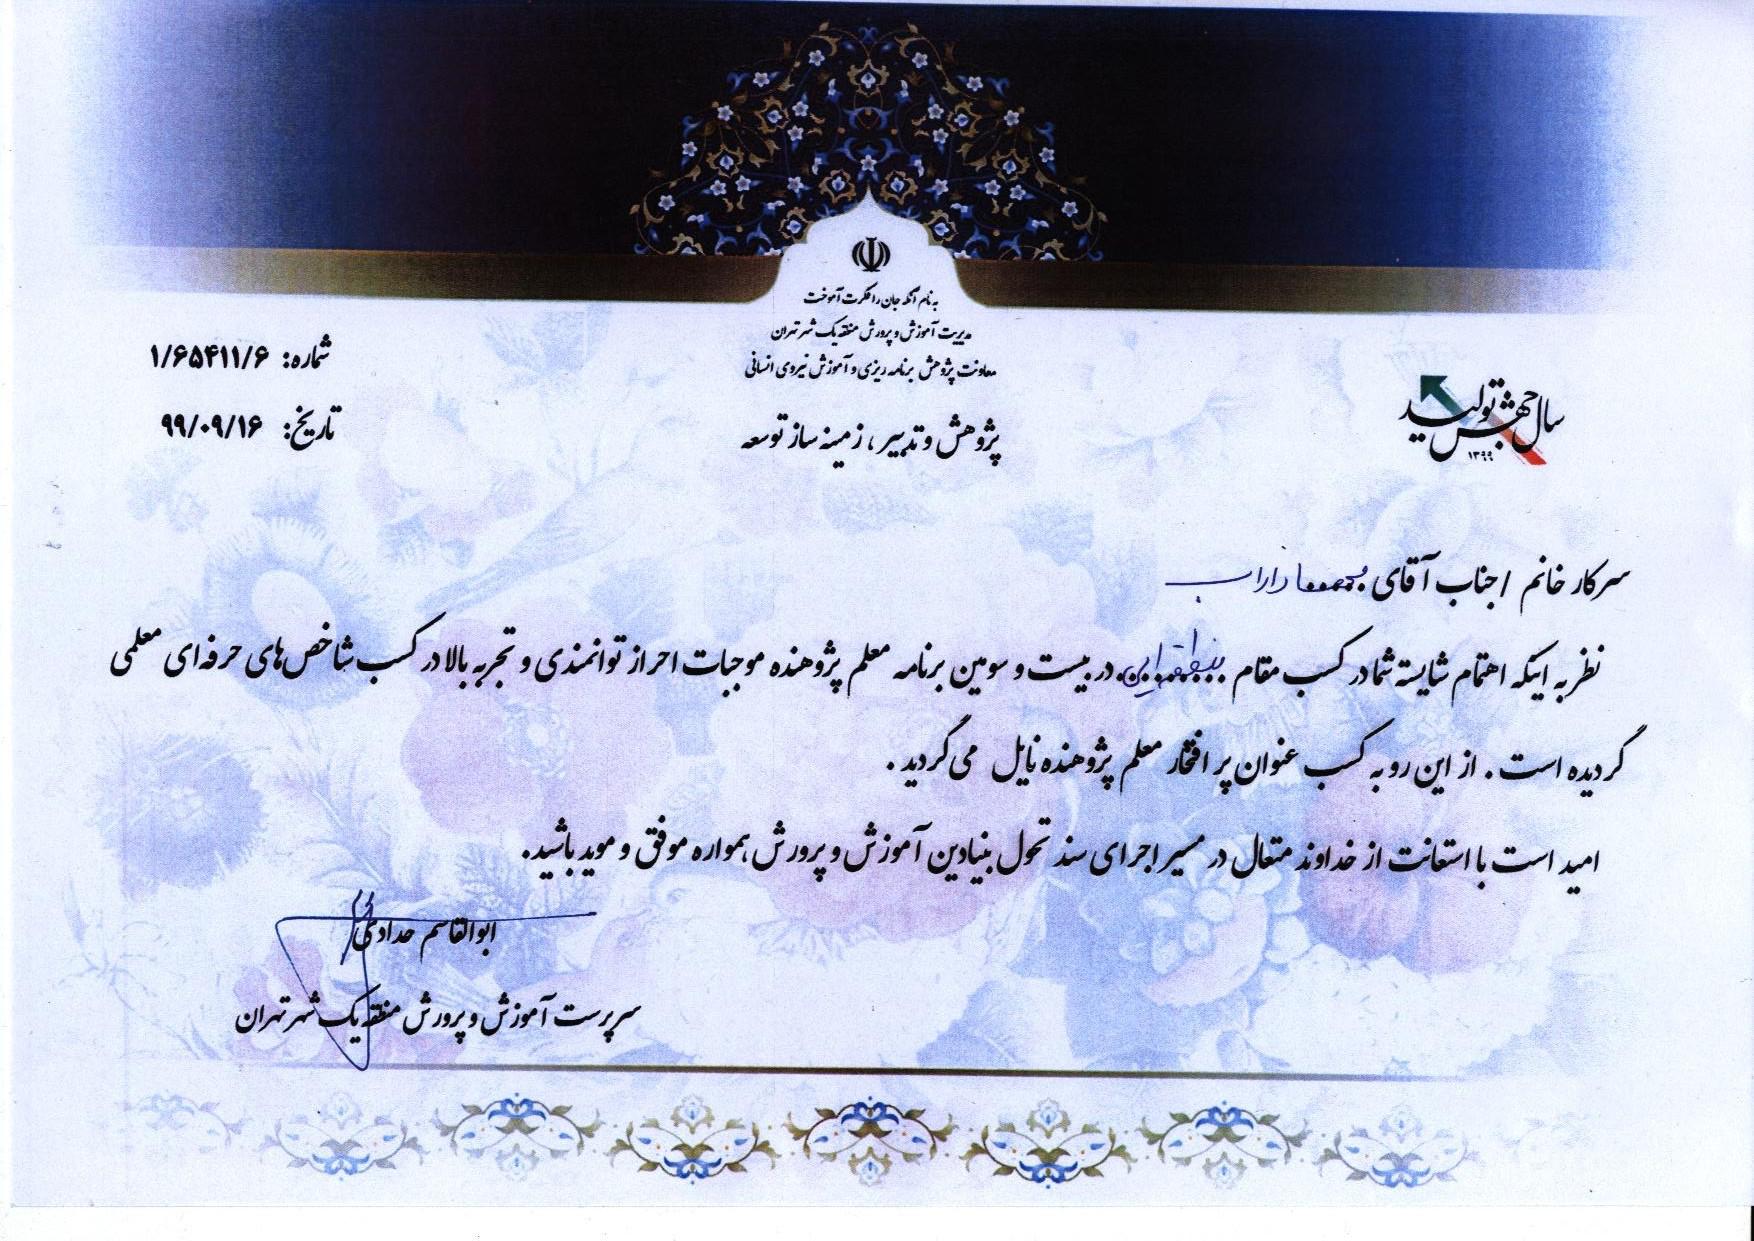 به نام آنکه جان را فکرت آموخت
مدیریت آموزش و پرورش منطقه یک شهر تهران
معاونت پژوهش برنامه ریزی و آموزش نیروی انسانی
پژوهش و تدبیر، زمینه ساز توسعه
شماره: ۱/۶۵۴۱۱/۶
تاریخ: ۹۹/۰۹/۱۶
سال جهش تولید
۱۳۹۹
سرکار خانم / جناب آقای داراب
نظر به اینکه اهتمام شایسته شما در کسب مقام در بیست و سومین برنامه معلم پژوهنده موجبات احراز توانمندی و تجربه بالا در کسب شاخص های حرفه ای معلمی
گردیده است. از این رو به کسب عنوان پر افتخار معلم پژوهنده نایل می گردید.
امید است با استعانت از خداوند متعال در مسیر اجرای سند تحول بنیادین آموزش و پرورش همواره موفق و موید باشید.
ابوالقاسم حدادی
سرپرست آموزش و پرورش منطقه یک شهر تهران